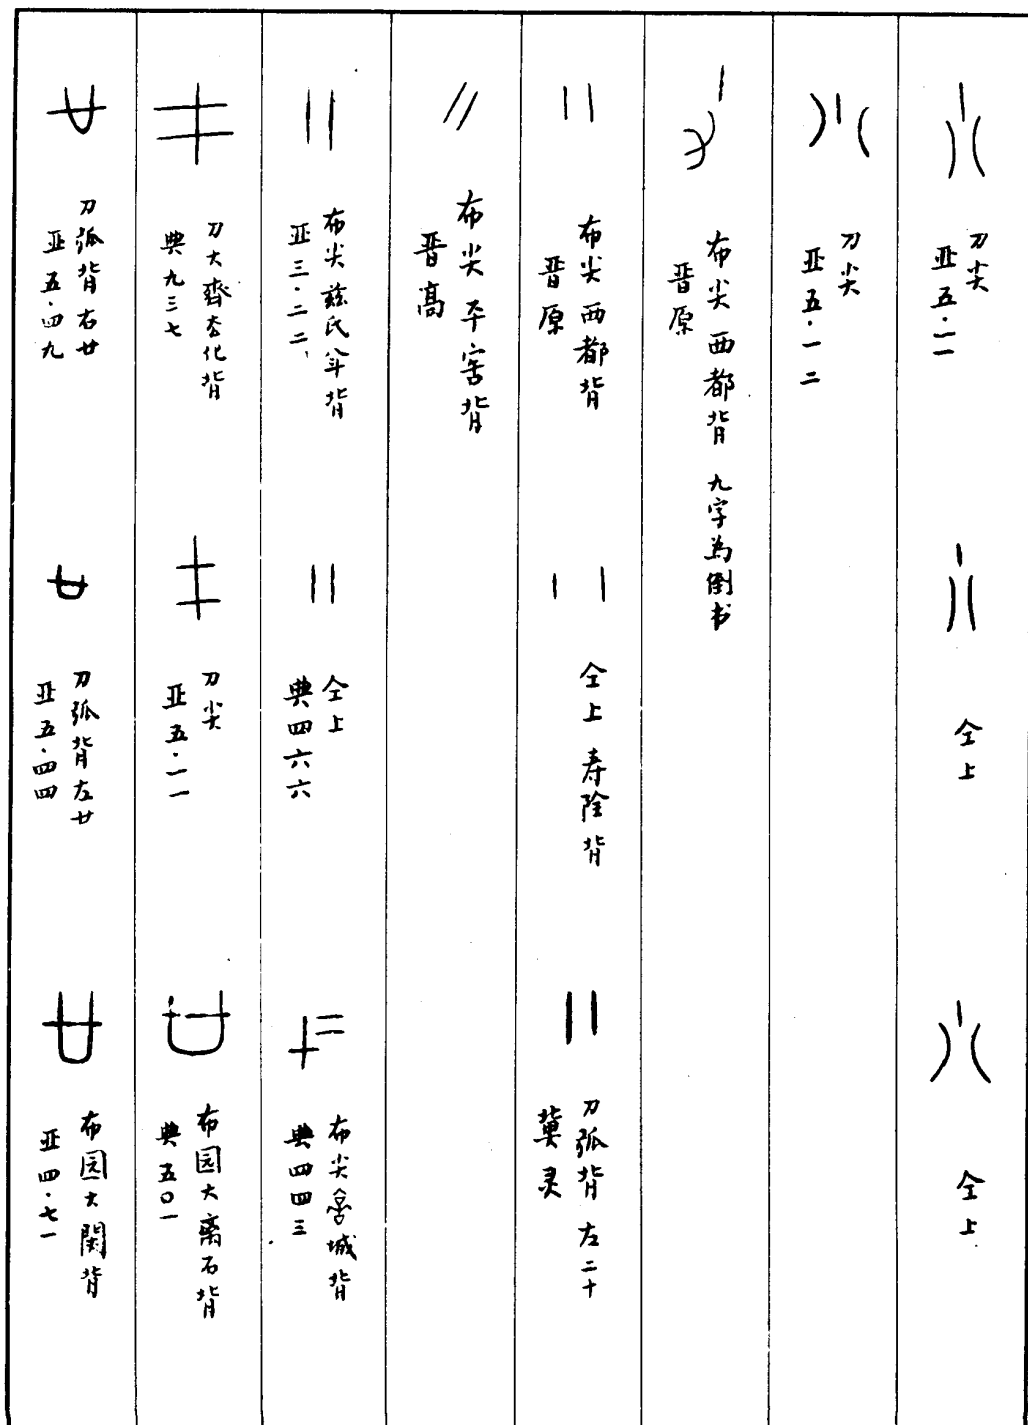 刀尖
亚五·一一
仝上
仝上
刀尖
亚五·一二
布尖西都背 九字为倒书
晋原
布尖西都背
晋原
仝上 寿阴背
刀弧背左二十
冀灵
布尖平窑背
晋高
布尖兹氏半背
亚三·二二
仝上
典四六六
布尖城背
典四四三
刀大齊厺化背
典九三七
刀尖
亚五·一一
布园大离石背
典五〇一
刀弧背右廿
亚五·四九
刀弧背左廿
亚五·四四
布园大閵背
亚四·七一